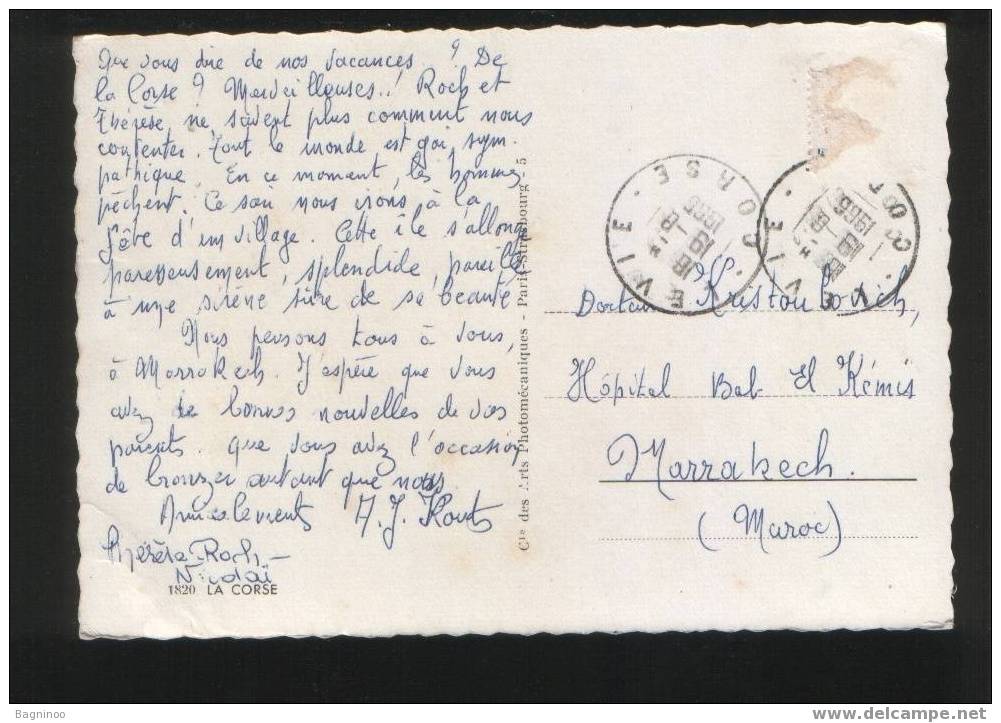 Que vous dire de nos vacances ? De
la Corse ? Merveilleuses..! Roch et
Thérèse, ne savent plus comment nous
contenter. Tout le monde est gai, sym-
pathique. En ce moment, les hommes
pêchent. Ce soir nous irons à la
fête d'un village. Cette île s'allonge
paresseusement, splendide, pareille
à une sirène sûre de sa beauté
Nous pensons tous à vous,
à Marrakech. J'espère que vous
avez de bonnes nouvelles de vos
parents. que vous avez l'occasion
de bronzer autant que nous
Amicalements A. J.
Thérèse-Roch-
Nicolaï
1820 LA CORSE
Cie des Arts Photomécaniques - Paris-Strasbourg 5
CORSE
19 -8
1966
CORSE
19 -8
1966
Docteur Kristoulovich,
Hôpital Bab El Kémis
Marrakech.
(Maroc)
Bagninoo
www.delcampe.net